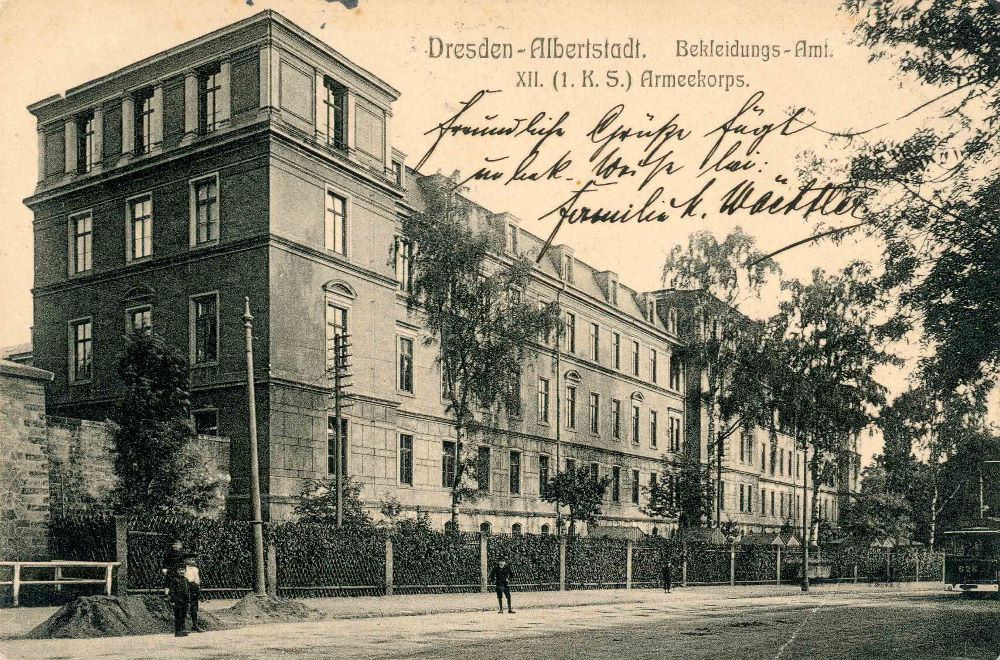 Dresden-Albertstadt. Bekleidungs-Amt.
XII. (1. K. S.) Armeekorps.
freundliche Grüße fügt
bei:
Familie K. Wächtler
628